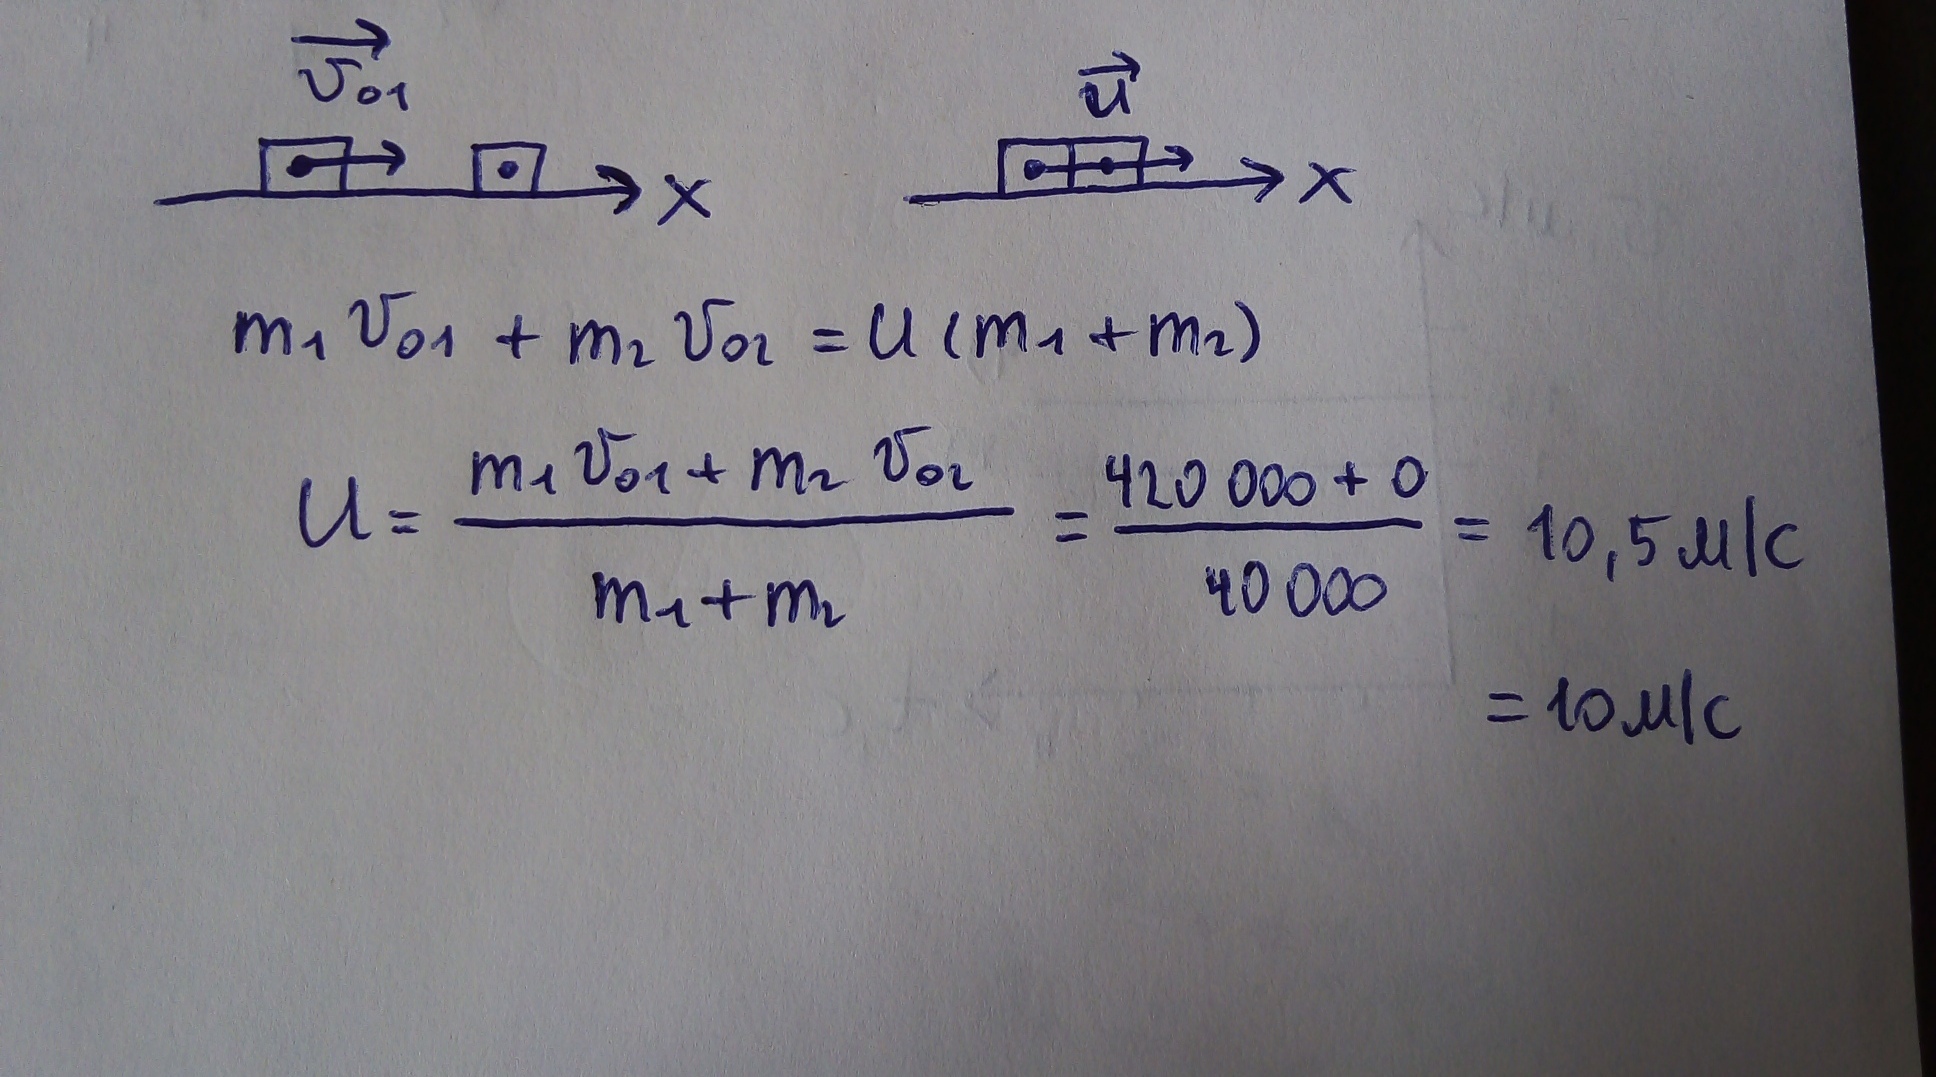 v₀₁ u
x x
m₁ v₀₁ + m₂ v₀₂ = u (m₁ + m₂)
u = (m₁ v₀₁ + m₂ v₀₂) / (m₁ + m₂) = (420 000 + 0) / 40 000 = 10,5 м/с
= 10 м/с